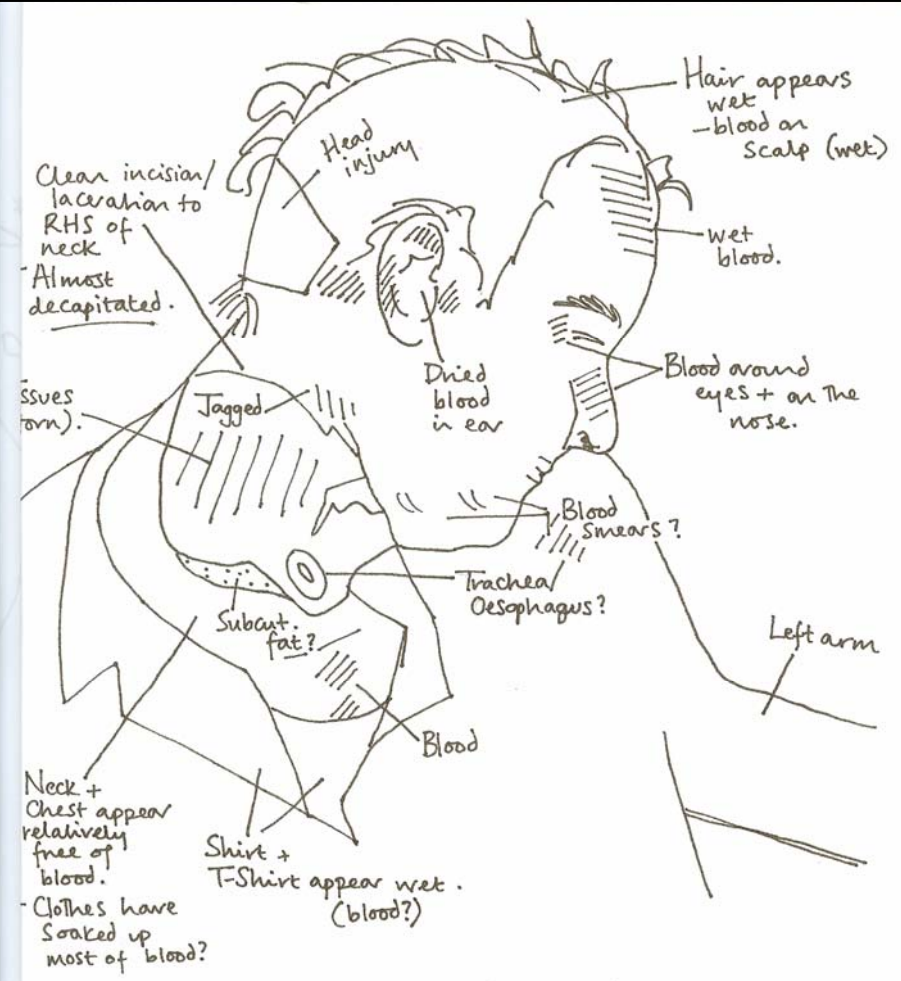 Hair appears
wet
– blood on
scalp (wet)
Head
injury
Clean incision/
laceration to
RHS of
neck
- Almost
decapitated.
wet
blood.
Dried
blood
in ear
Blood around
eyes + on the
nose.
ssues
orn).
Jagged
Blood
smears?
Trachea/
Oesophagus?
Subcut.
fat?
Left arm
Blood
Neck +
Chest appear
relatively
free of
blood.
- Clothes have
soaked up
most of blood?
Shirt +
T-Shirt appear wet.
(blood?)